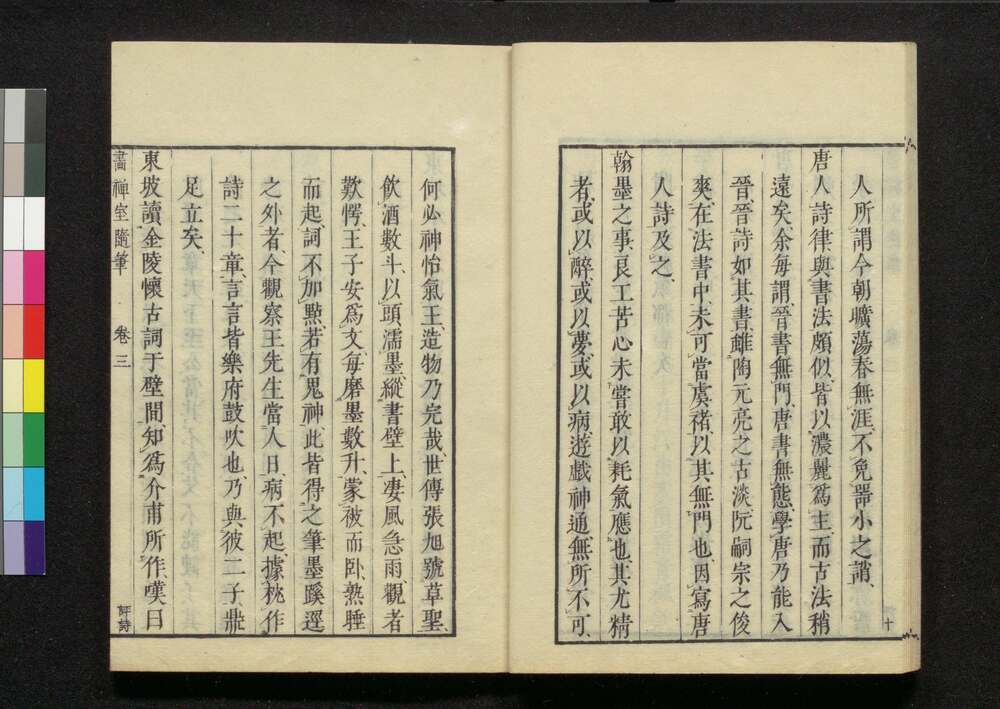 人所謂今朝曠蕩春無涯不免器小之誚
唐人詩律與書法頗似皆以濃麗爲主而古法稍
遠矣余每謂晉書無門唐書無態學唐乃能入
晉晉詩如其書雖陶元亮之古淡阮嗣宗之俊
爽在法書中未可當虞褚以其無門也因寫唐
人詩及之
翰墨之事良工苦心未嘗敢以耗氣應也其尤精
者或以醉或以夢或以病遊戲神通無所不可
何必神怡氣王造物乃完哉世傳張旭號草聖
飲酒數斗以頭濡墨縱書壁上淒風急雨觀者
歎愕王子安爲文每磨墨數升蒙被而臥熟睡
而起詞不加點若有鬼神此皆得之筆墨蹊逕
之外者今觀察王先生當人日病不起據枕作
詩二十章言言皆樂府鼓吹也乃與彼二子鼎
足立矣
東坡讀金陵懷古詞于壁間知爲介甫所作嘆曰
畫禪室隨筆 卷三 評詩
十